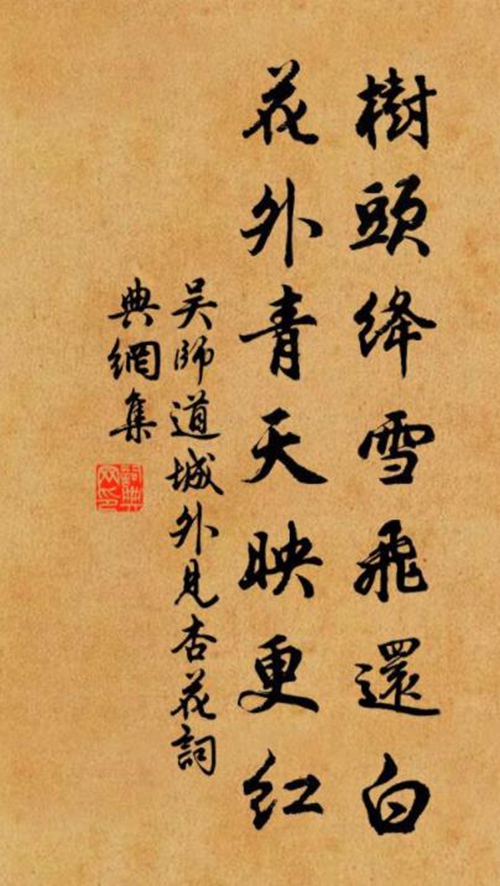 樹頭絳雪飛還白
花外青天映更紅
吳師道城外見杏花詞
典網集
詞典网印